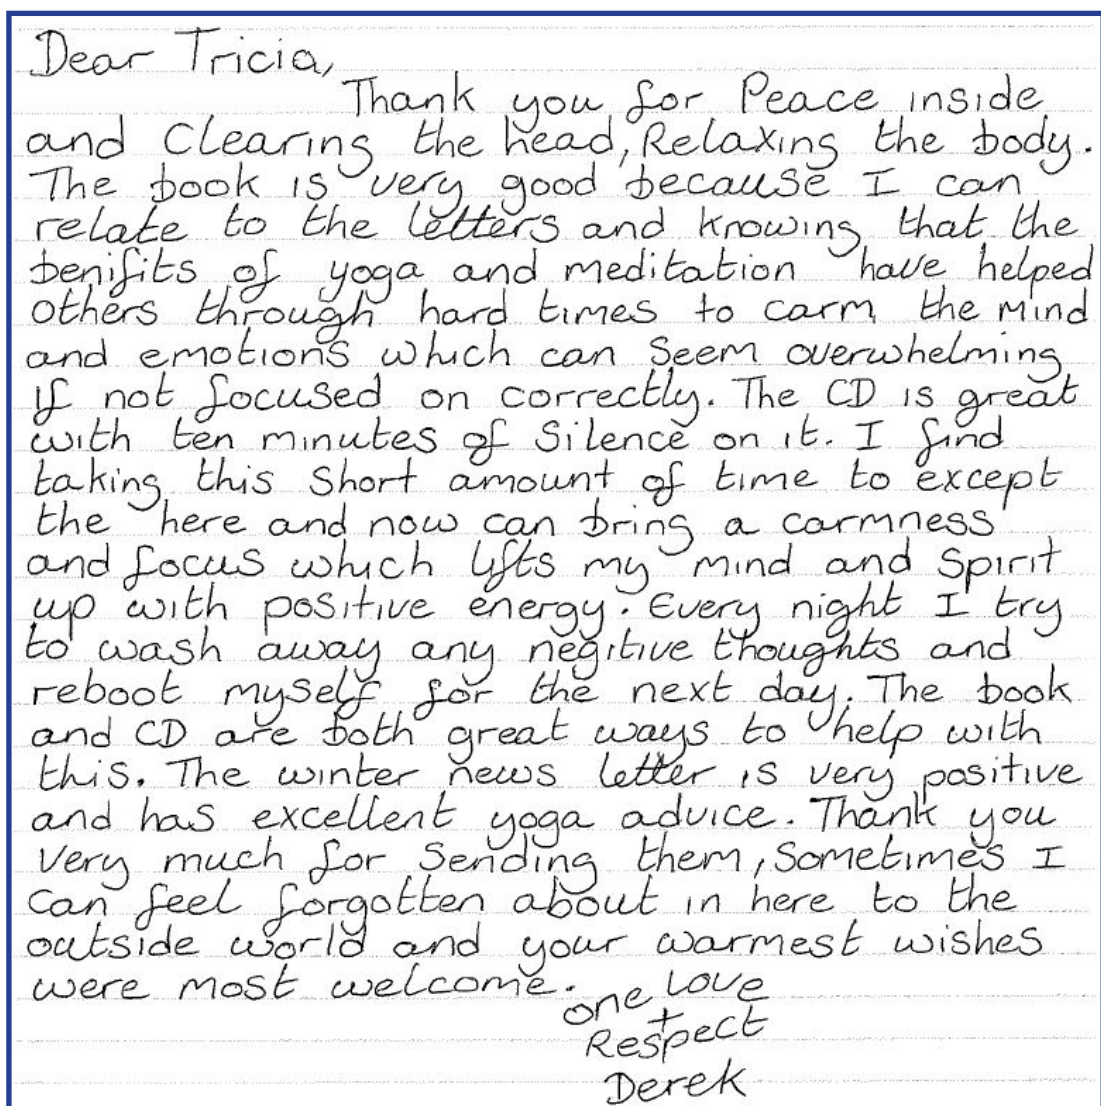 Dear Tricia,
Thank you for Peace inside
and Clearing the head, Relaxing the body.
The book is very good because I can
relate to the letters and knowing that the
benifits of yoga and meditation have helped
others through hard times to carm the mind
and emotions which can seem overwhelming
if not focused on correctly. The CD is great
with ten minutes of silence on it. I find
taking this short amount of time to except
the here and now can bring a carmness
and focus which lifts my mind and spirit
up with positive energy. Every night I try
to wash away any negitive thoughts and
reboot myself for the next day. The book
and CD are both great ways to help with
this. The winter news letter is very positive
and has excellent yoga advice. Thank you
very much for sending them, sometimes I
can feel forgotten about in here to the
outside world and your warmest wishes
were most welcome.
one love
+
Respect
Derek